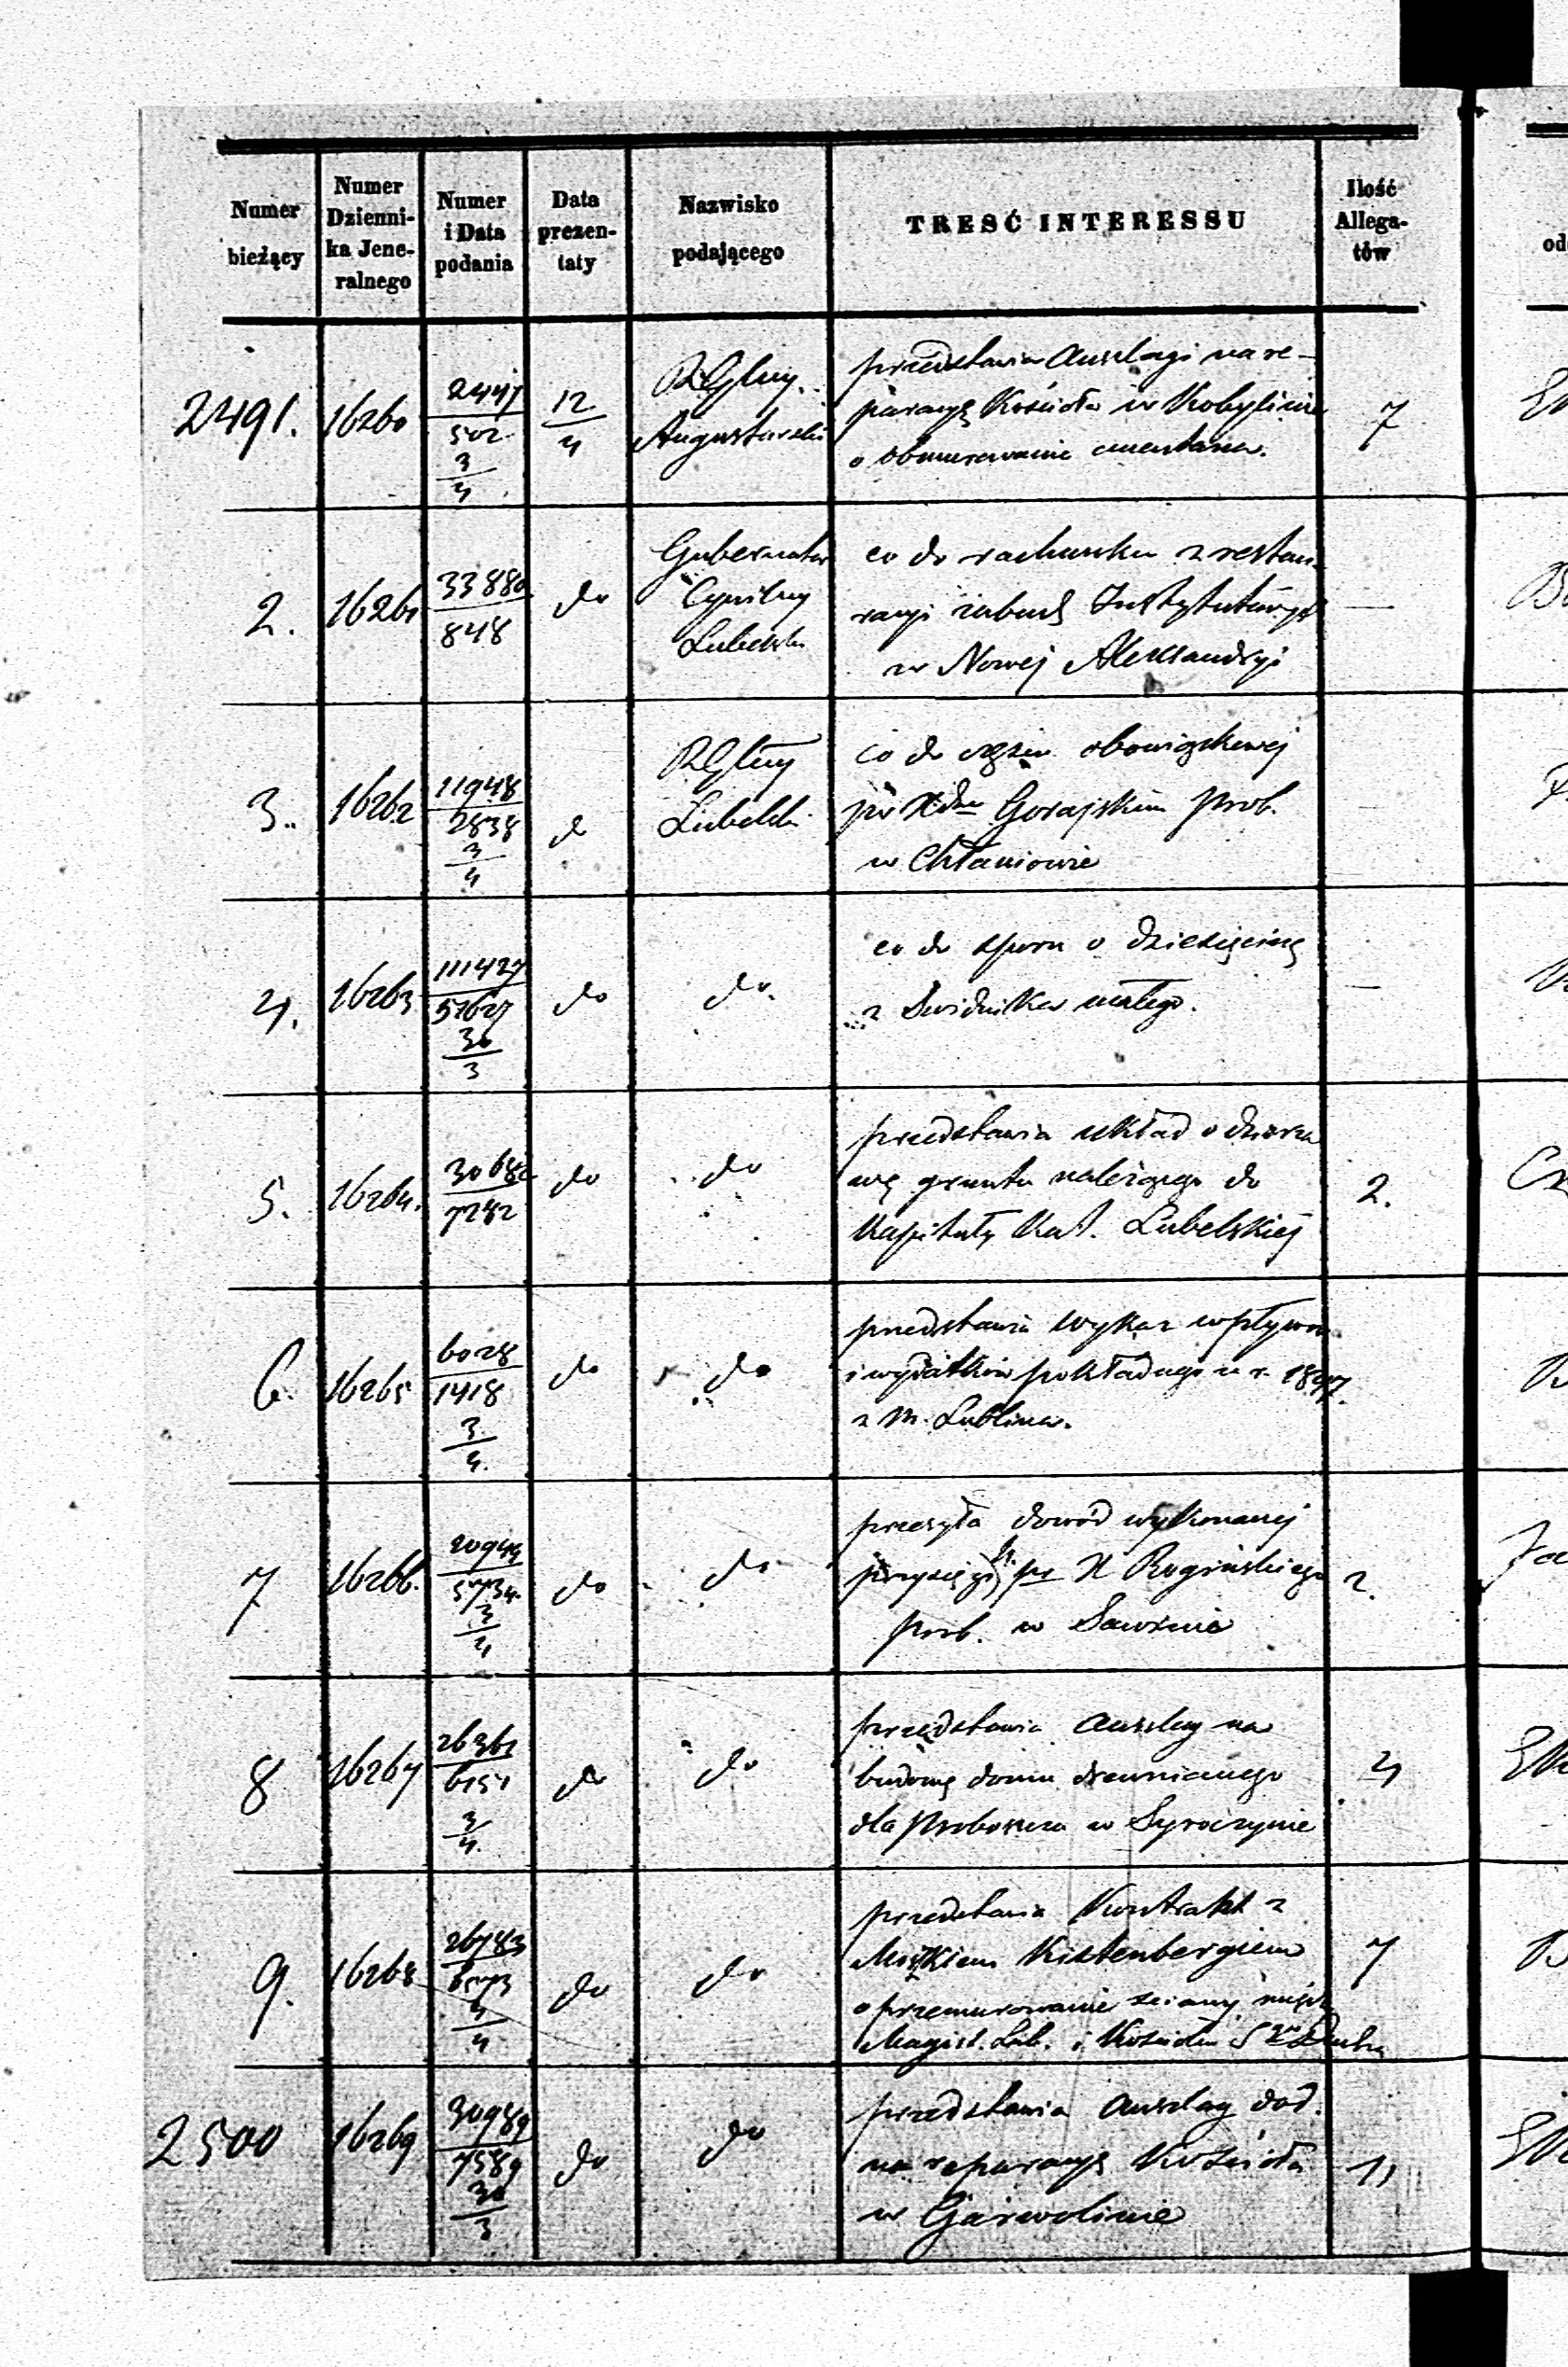 Numer
bieżący
Numer
Dzienni-
ka Jene-
ralnego
Numer
i Data
podania
Data
prezen-
taty
Nazwisko
podającego
TREŚĆ INTERESSU
Ilość
Allega-
tów
2491.
16260
2447
502
3
4
12
4
RGlny
Augustowski
przedstawia Anszlagi na re-
paracyę Kościoła w Kobylinie
o obmurowanie cmentarza.
7
2.
16261
33880
848
do
Gubernator
Cywilny
Lubelski
co do rachunku z restau
racyi zabud Instytutowych
w Nowej Alexandryi
3.
16262
11948
2838
3
4
do
RGlny
Lubelski
co do części obowiązkowej
po Xdzu Gorajskim prob.
w Chłaniowie
4.
16263
111427
57627
30
3
do
do
co do sporu o dziesięcinę
z Swidnika małego.
5.
16264.
30682
7282
do
do
przedstawia układ o dzierża
wę gruntu należącego do
Kapituły Kat. Lubelskiej
2.
6.
16265
6028
1418
3
4.
do
do
przedstawia wykaz wpływow
i wydatków pokładnego z r. 1847.
z m. Lublina.
7
16266.
20944
5734
3
4
do
do
przesyła dowód wykonanej
przysięgi pr X Rogińskiego
prob. w Sawinie
2.
8
16267
26361
6151
3
4.
do
do
przedstawia anszlag na
budowę domu drewnianego
dla Proboszcza w Syroczynie
4
9.
16268
26783
6573
4
4
do
do
przedstawia Kontrakt z
Moszkiem Kistenbergiem
o przemurowanie ściany między
Magist. Lub. i Kościoła Sgo Ducha
7
2500
16269
30989
7589
30
3
do
do
przedstawia anszlag dod.
na reparacyę Kościoła
w Garwolinie
11